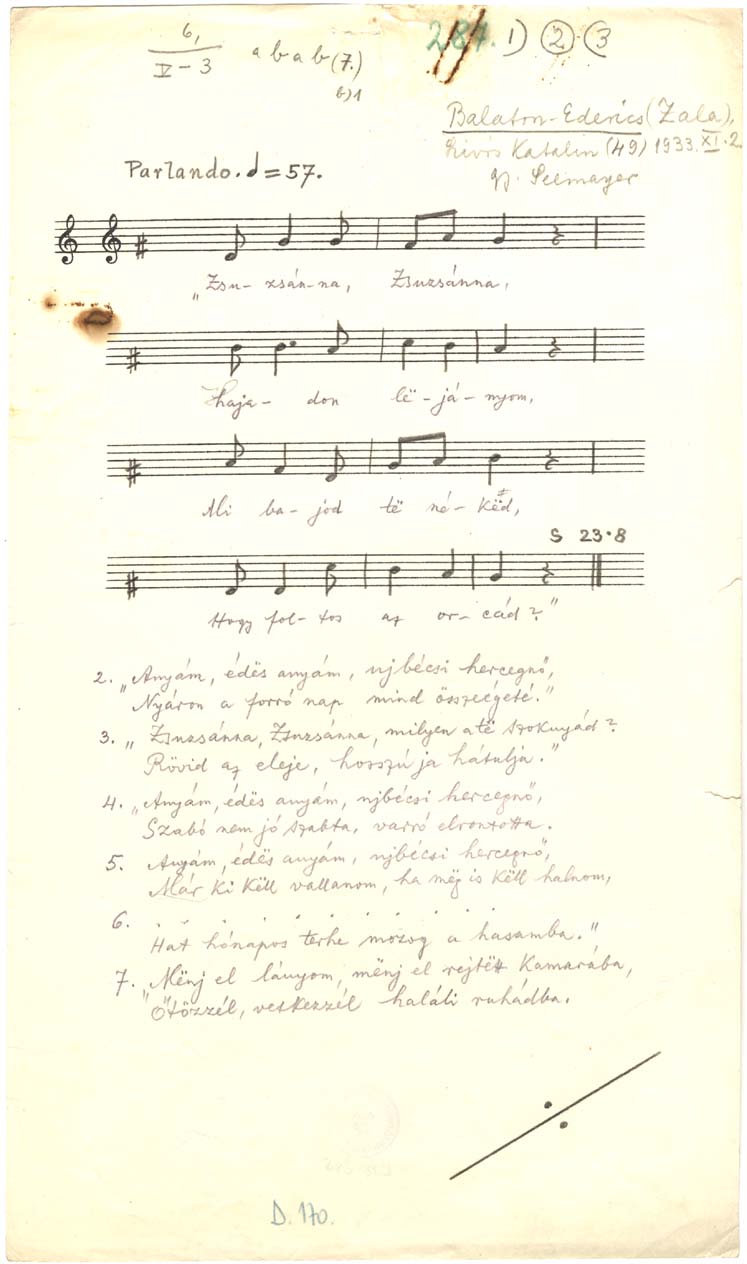 6,
V - 3
a b a b (7.)
b) 1
287. 1) 2 3
Balaton-Ederics (Zala),
Katalin (49) 1933. XI. 2.
gy. Seemayer
Parlando. = 57.
"Zsu- zsán-na, Zsuzsánna,
Haja- don lë- já- nyom,
Mi ba- jod të né- këd,
S 23·8
Hogy fol- tos az or- cád?"
2. "Anyám, édës anyám, ujbécsi hercegnő,
Nyáron a forró nap mind összeégeté."
3. "Zsuzsánna, Zsuzsánna, milyen a të szoknyád?
Rövid az eleje, hosszú ja hátulja."
4. "Anyám, édës anyám, ujbécsi hercegnő,
Szabó nem jó szabta, varró elrontotta.
5. Anyám, édës anyám, ujbécsi hercegnő,
Már ki këll vallanom, ha még is këll halnom,
6. . . . . . . . .
Hat hónapos terhe mozog a hasamba."
7. "Mënj el lányom, mënj el rejtëtt kamarába,
Ötözzél, vetkezzél haláli ruhádba.
D. 170.